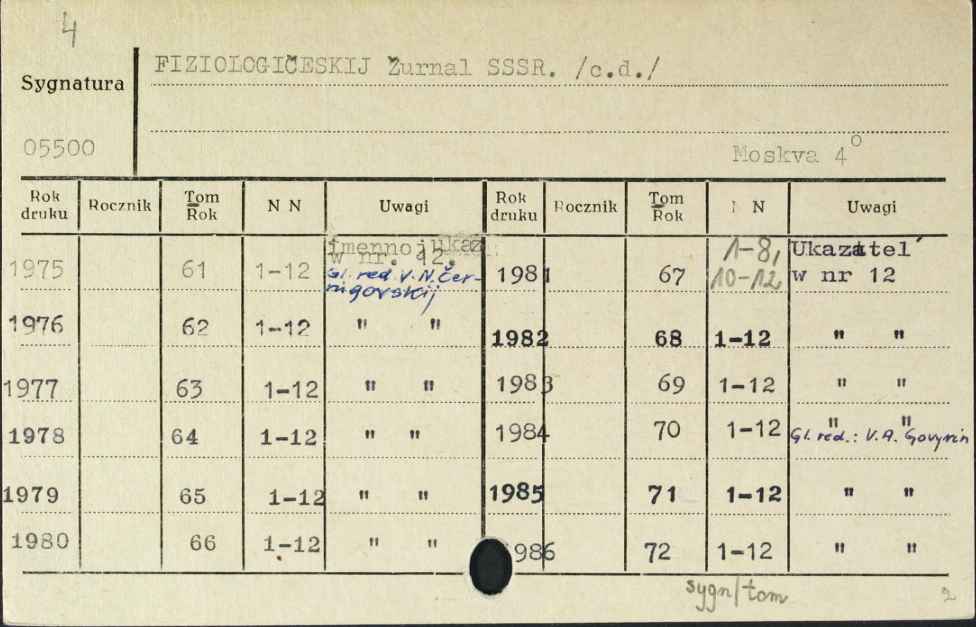 4
Sygnatura
FIZIOLOGIČESKIJ Žurnal SSSR. /c.d./
05500
Moskva 4°
Rok druku Rocznik Tom Rok N N Uwagi Rok druku Rocznik Tom Rok N N Uwagi
1975 61 1-12 imennoj ukaz w nr. 12. Gl. red V.N. Černigovskij 1981 67 1-8, 10-12, Ukazatel' w nr 12
1976 62 1-12 " " 1982 68 1-12 " "
1977 63 1-12 " " 1983 69 1-12 " "
1978 64 1-12 " " 1984 70 1-12 " " Gl. red.: V.A. Govyrin
1979 65 1-12 " " 1985 71 1-12 " "
1980 66 1-12 " " 986 72 1-12 " "
sygn/tom
2